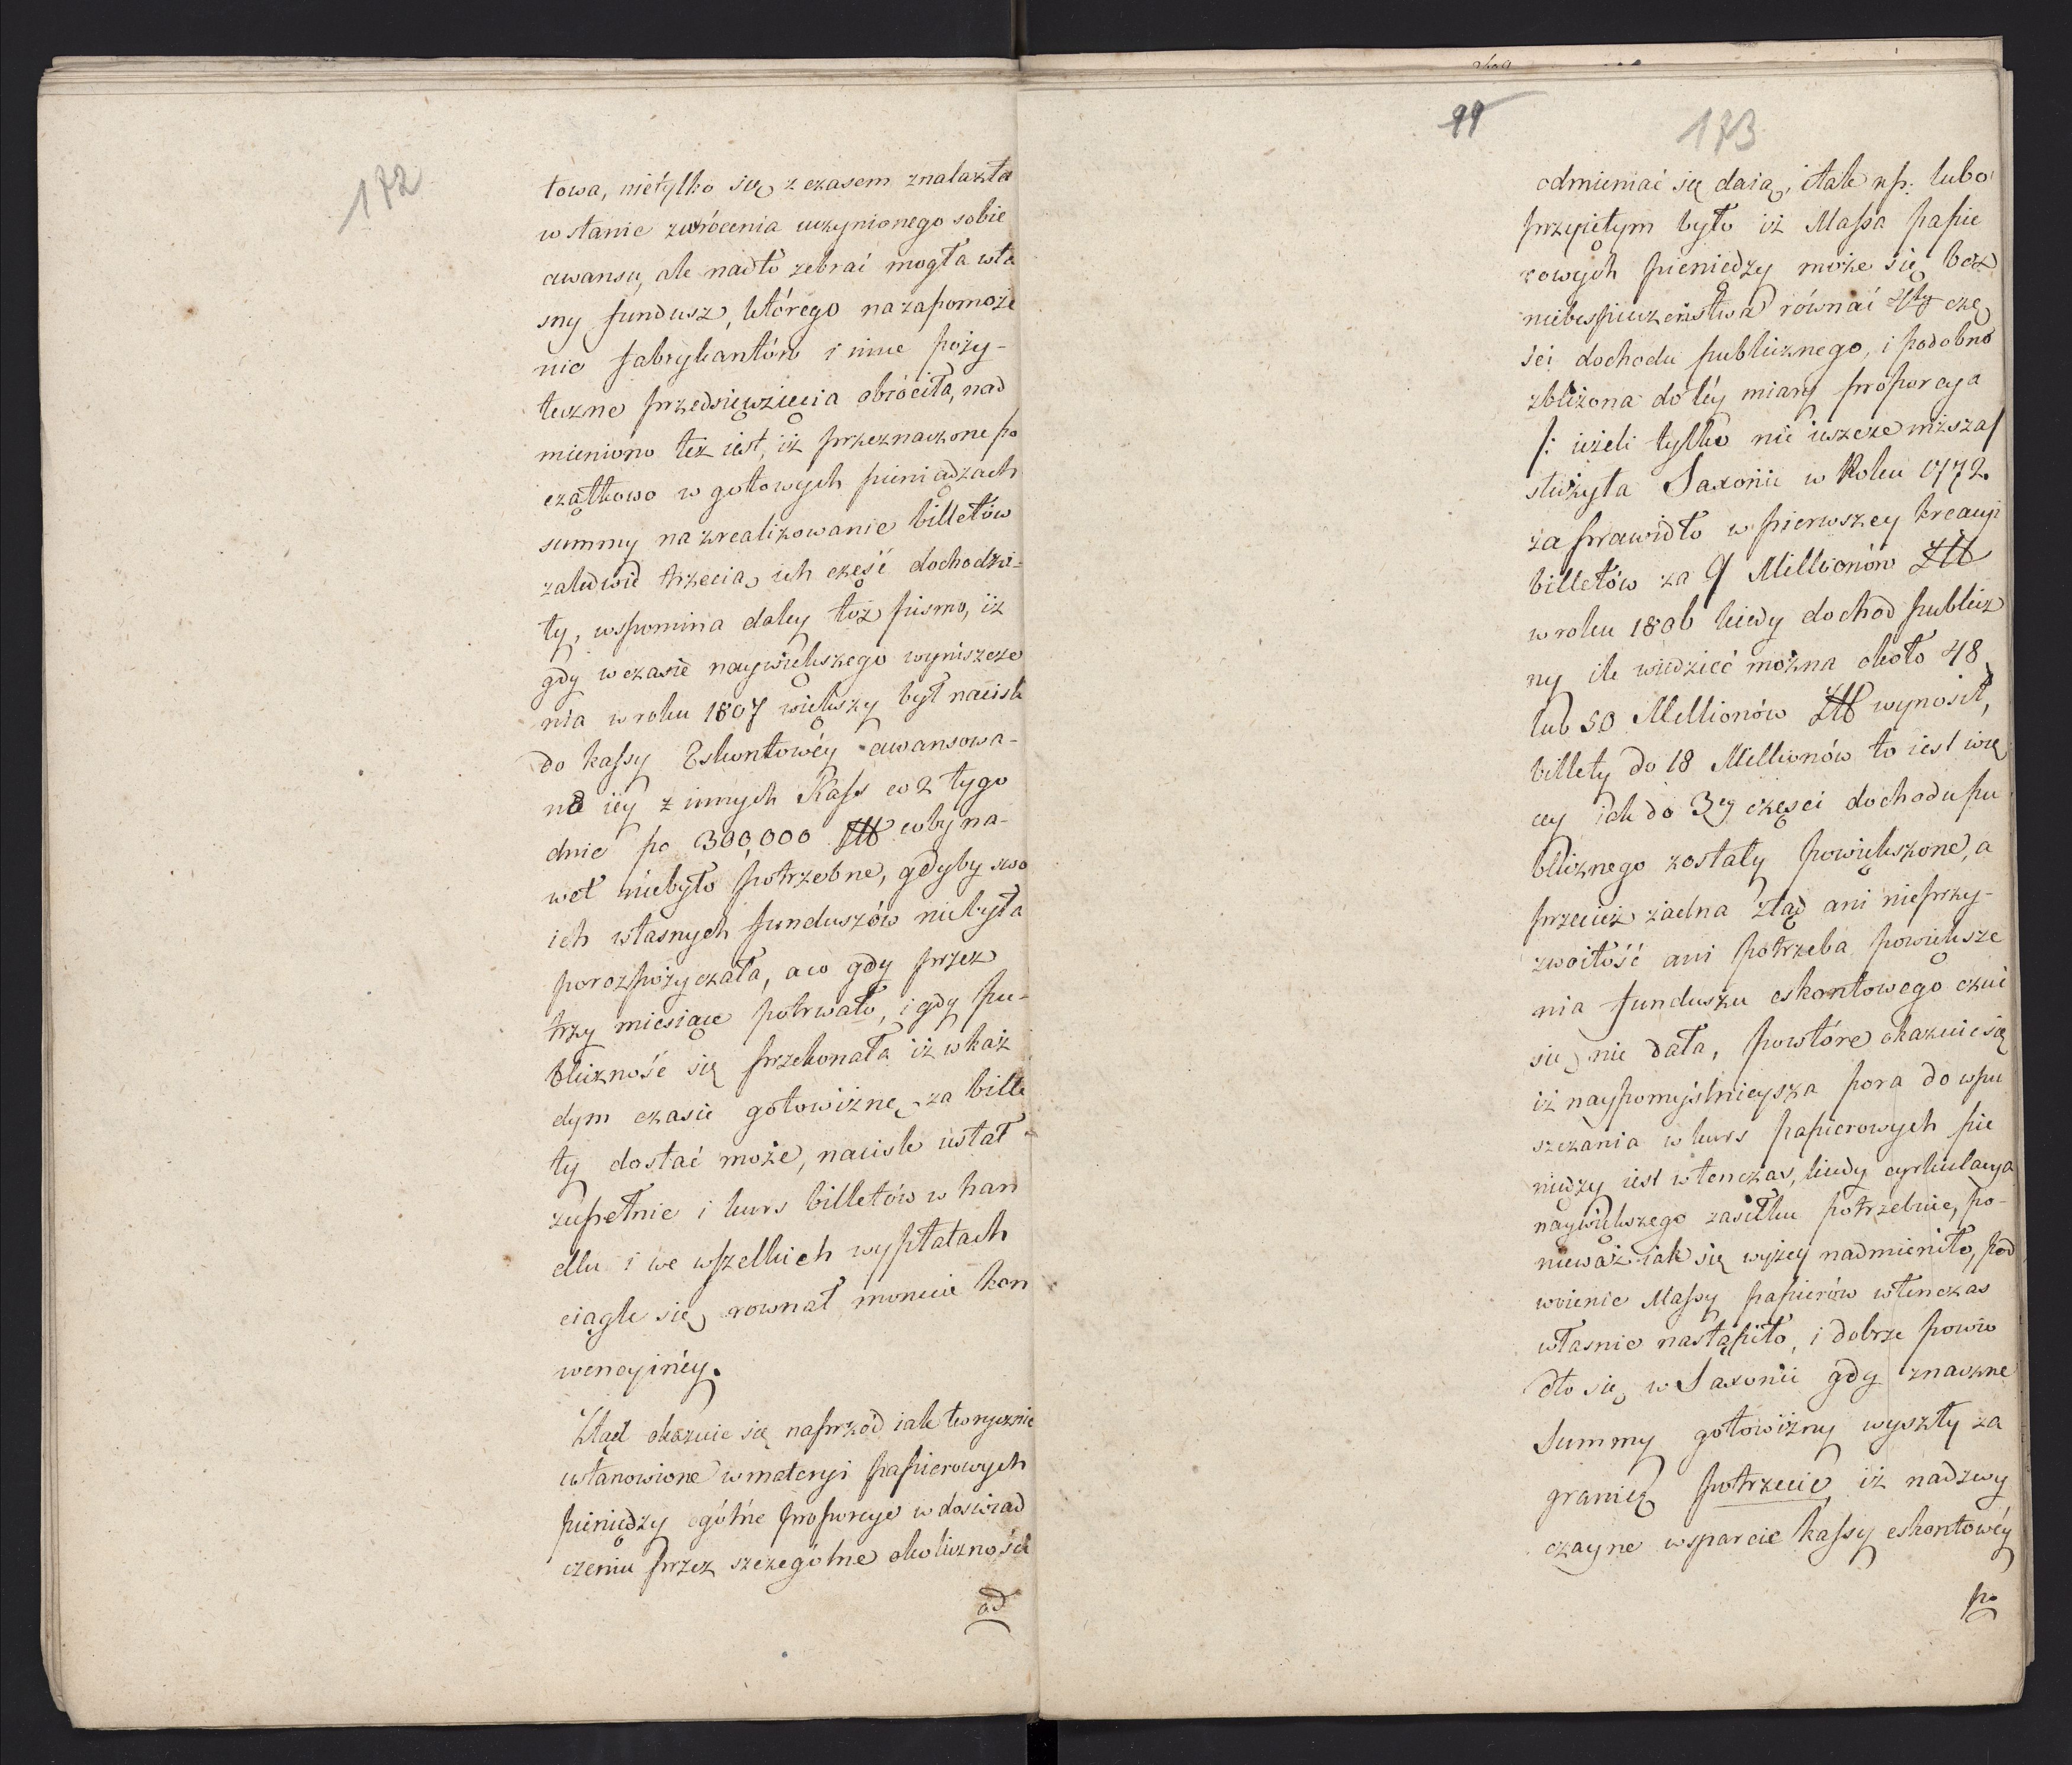 172
towa, nietylko się z czasem znalazła
w stanie zwrócenia uczynionego sobie
awansu, ale nadto zebrać mogła wła
sny fundusz, którego na zapomoże
nie fabrykantów i inne poży-
teczne przedsięwzięcia obróciła, nad
mieniono też iest, iż przeznaczone po
czątkowo w gotowych pieniądzach
summy na zrealizowanie billetów
zaledwie trzecią ich część dochodzi-
ły, wspomina daley toż pismo, iż
gdy w czasie naywiększego wyniszcze
nia w roku 1807 większy był nacisk
do kassy Eskontowéy awansowa-
ne iéy z innych Kass co 2 tygo
dnie po 300,000 coby na-
wet niebyło potrzebne, gdyby swo
ich własnych funduszów niebyła
porozpożyczała, a co gdy przez
trzy miesiące potrwało, i gdy pu-
bliczność się przekonała iż w każ
dym czasie gotowiznę za bille
ty dostać może, nacisk ustał
zupełnie i kurs billetów w han
dlu i we wszelkich wypłatach
ciągle się rownał monecie kon
wencyinéy.
Ztąd okazuie się naprzód iak teorycznie
ustanowione w materyi papierowych
pieniędzy ogólne proporcye w doswiad
czeniu przez szczególne okoliczności
od
99
173
odmieniać się daią, i tak np. lubo
przyiętym było iż Massa papie
rowych pieniędzy może się bez
niebespieczeństwa równać 4tey czę
ści dochodu publicznego, i podobno
zbliżona do téy miary proporcya
/: ieżeli tylko nie ieszcze niższa/
służyła Saxonii w Roku 1772.
za prawidło w pierwszey kreacyi
billetów za 9 Millionów
w roku 1806 kiedy dochod publicz
ny ile wiedzieć można około 48
lub 50 Millionów wynosił,
billety do 18 Millionów to iest wię
cey iak do 3ey części dochodu pu
blicznego zostały powiększone, a
przecież żadna ztąd ani nieprzy-
zwoitość ani potrzeba powiększe
nia funduszu eskontowego czuć
się nie dała, powtóre okazuie się
iż naypomyślnieysza pora do wpu
szczania w kurs papierowych pie
niędzy iest wtenczas, kiedy cyrkulacya
naywiększego zasiłku potrzebuie, po-
nieważ iak się wyżey nadmieniło, pod
woienie Massy papierów wtenczas
własnie nastąpiło, i dobrze powio
dło się w Saxonii gdy znaczne
Summy gotowizny wyszły za
granicę potrzecie iż nadzwy
czayne wsparcie kassy eskontowéy
po